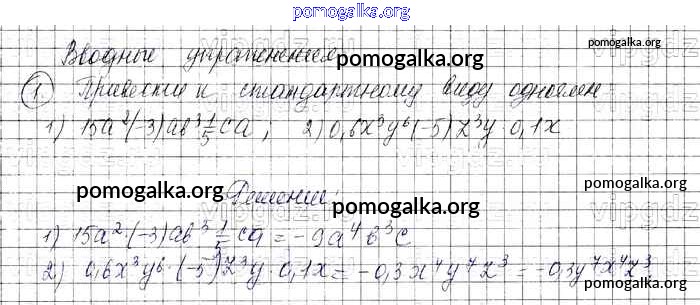 pomogalka.org
Вводные упражнения
pomogalka.org
pomogalka.org
① Привести к стандартному виду одночлен
1) 15a²(-3)ab³ 1/5 ca ; 2) 0,6x³y⁶(-5)z³y · 0,1x
pomogalka.org
Решение:
pomogalka.org
pomogalka.org
1) 15a² · (-3)ab³ 1/5 ca = -9a⁴b³c
2) 0,6x³y⁶ · (-5)z³y · 0,1x = -0,3x⁴y⁷z³ = -0,3y⁷x⁴z³
pomogalka.org